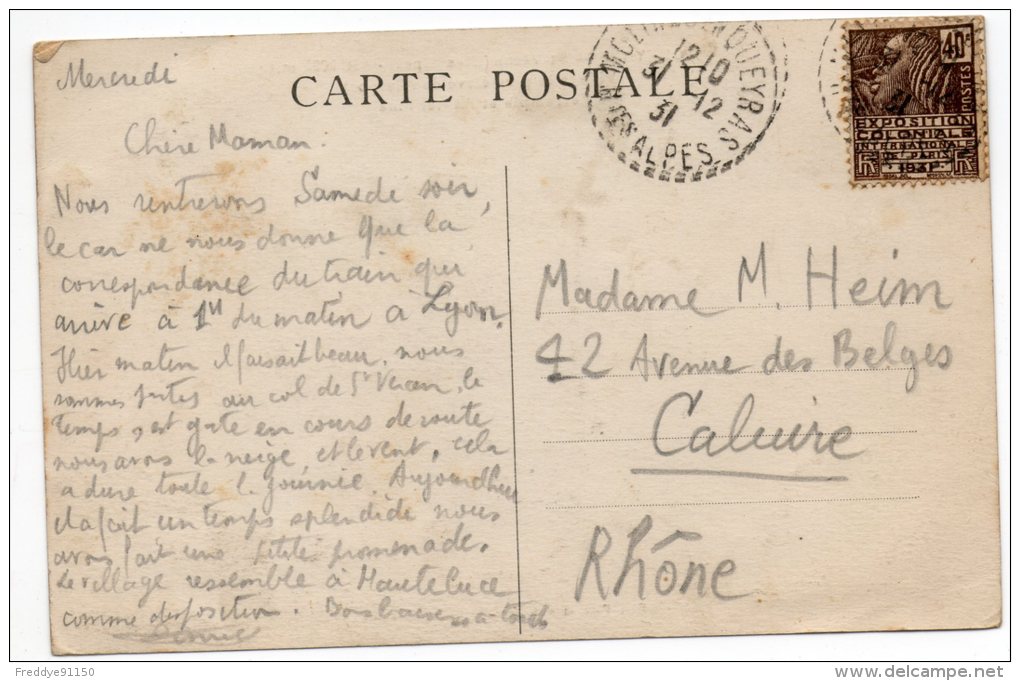 Mercredi
CARTE POSTALE
MOLINES EN QUEYRAS
12 10
31 - 12
31
Htes ALPES
40c
POSTES
EXPOSITION
COLONIALE
INTERNATIONALE
PARIS
1931
RF
Chère Maman.
Nous rentrerons Samedi soir,
le car ne nous donne que la
correspondance du train qui
arrive à 1H du matin à Lyon.
Hier matin il faisait beau, nous
sommes partis au col de St Veran, le
temps s'est gaté en cours de route
nous avons la neige, et le vent, cela
a duré toute la journée. Aujourd'hui
il a fait un temps splendide nous
avons fait une petite promenade.
Le village ressemble à Hauteluce
comme disposition. Bons baisers à tous
Madame M. Heim
42 Avenue des Belges
Caluire
Rhône
Freddye91150
www.delcampe.net